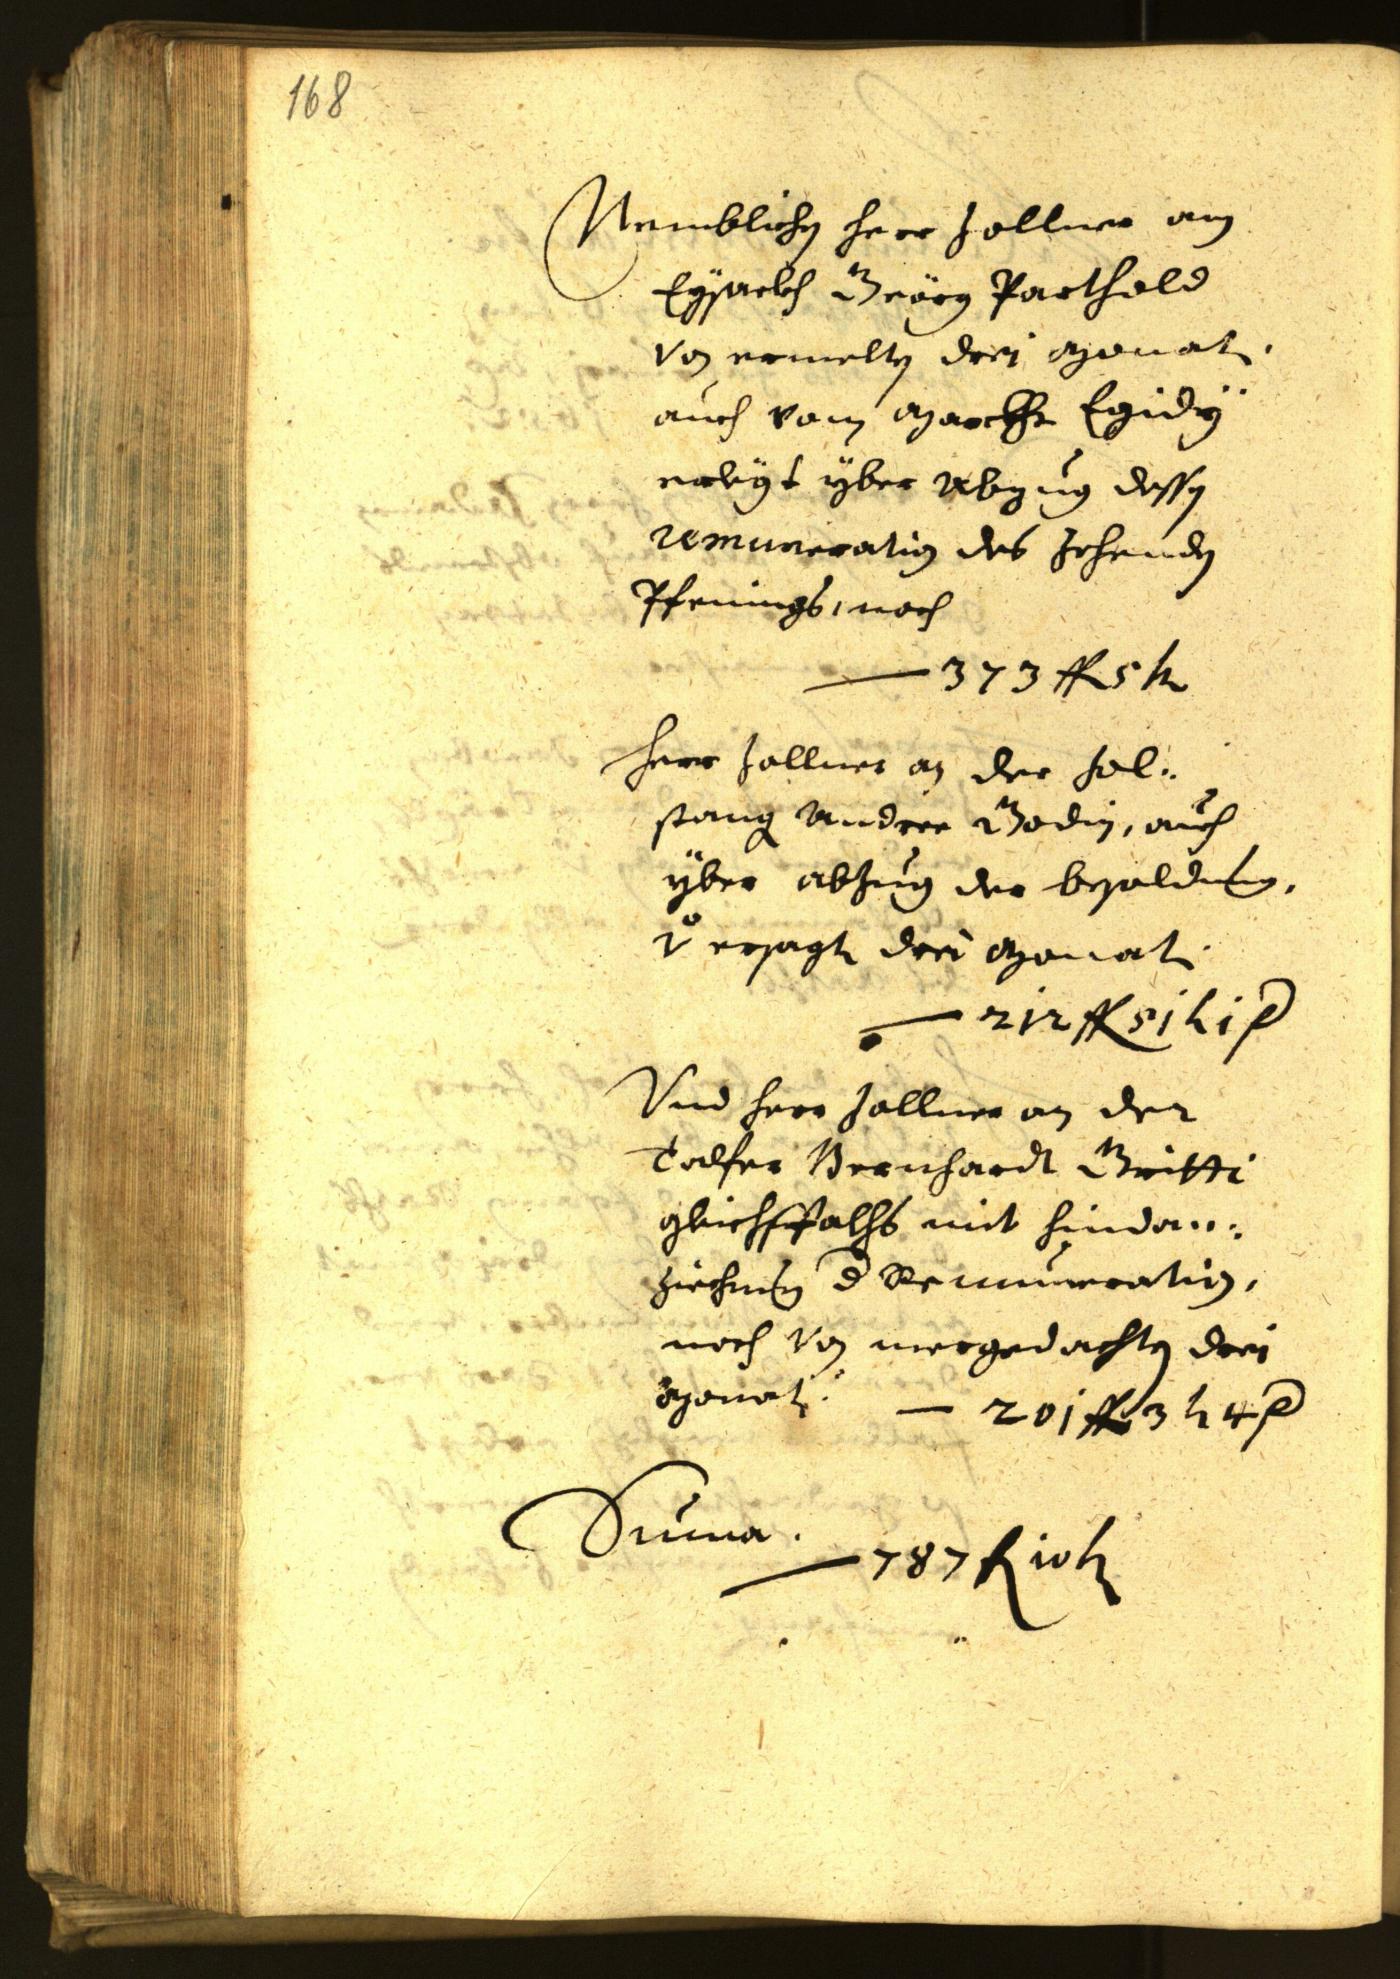 168
Nemblichen herr Zollner am
Eysackh Geörg Parthold
von ermelten drei Monat,
auch vom Marckht Egidÿ
erlegt ÿber Abzug dessen
remuneration des Zehenden
Pfenings, noch
— 373 fl 5 kr
Herr Zollner an der Zol:
stang Andree Bodin, auch
ÿber abzug der besoldung,
vo ersagt drei Monat.
— 212 fl 51 kr 1 d
Vnd herr Zollner an der
Talfer Bernhardt Britti
gleichsfalhs mit hindan:
ziehung d Remuneration,
noch von mergedachten drei
Monat: — 201 fl 3 kr 4 d
Suma.
— 787 fl 10 kr